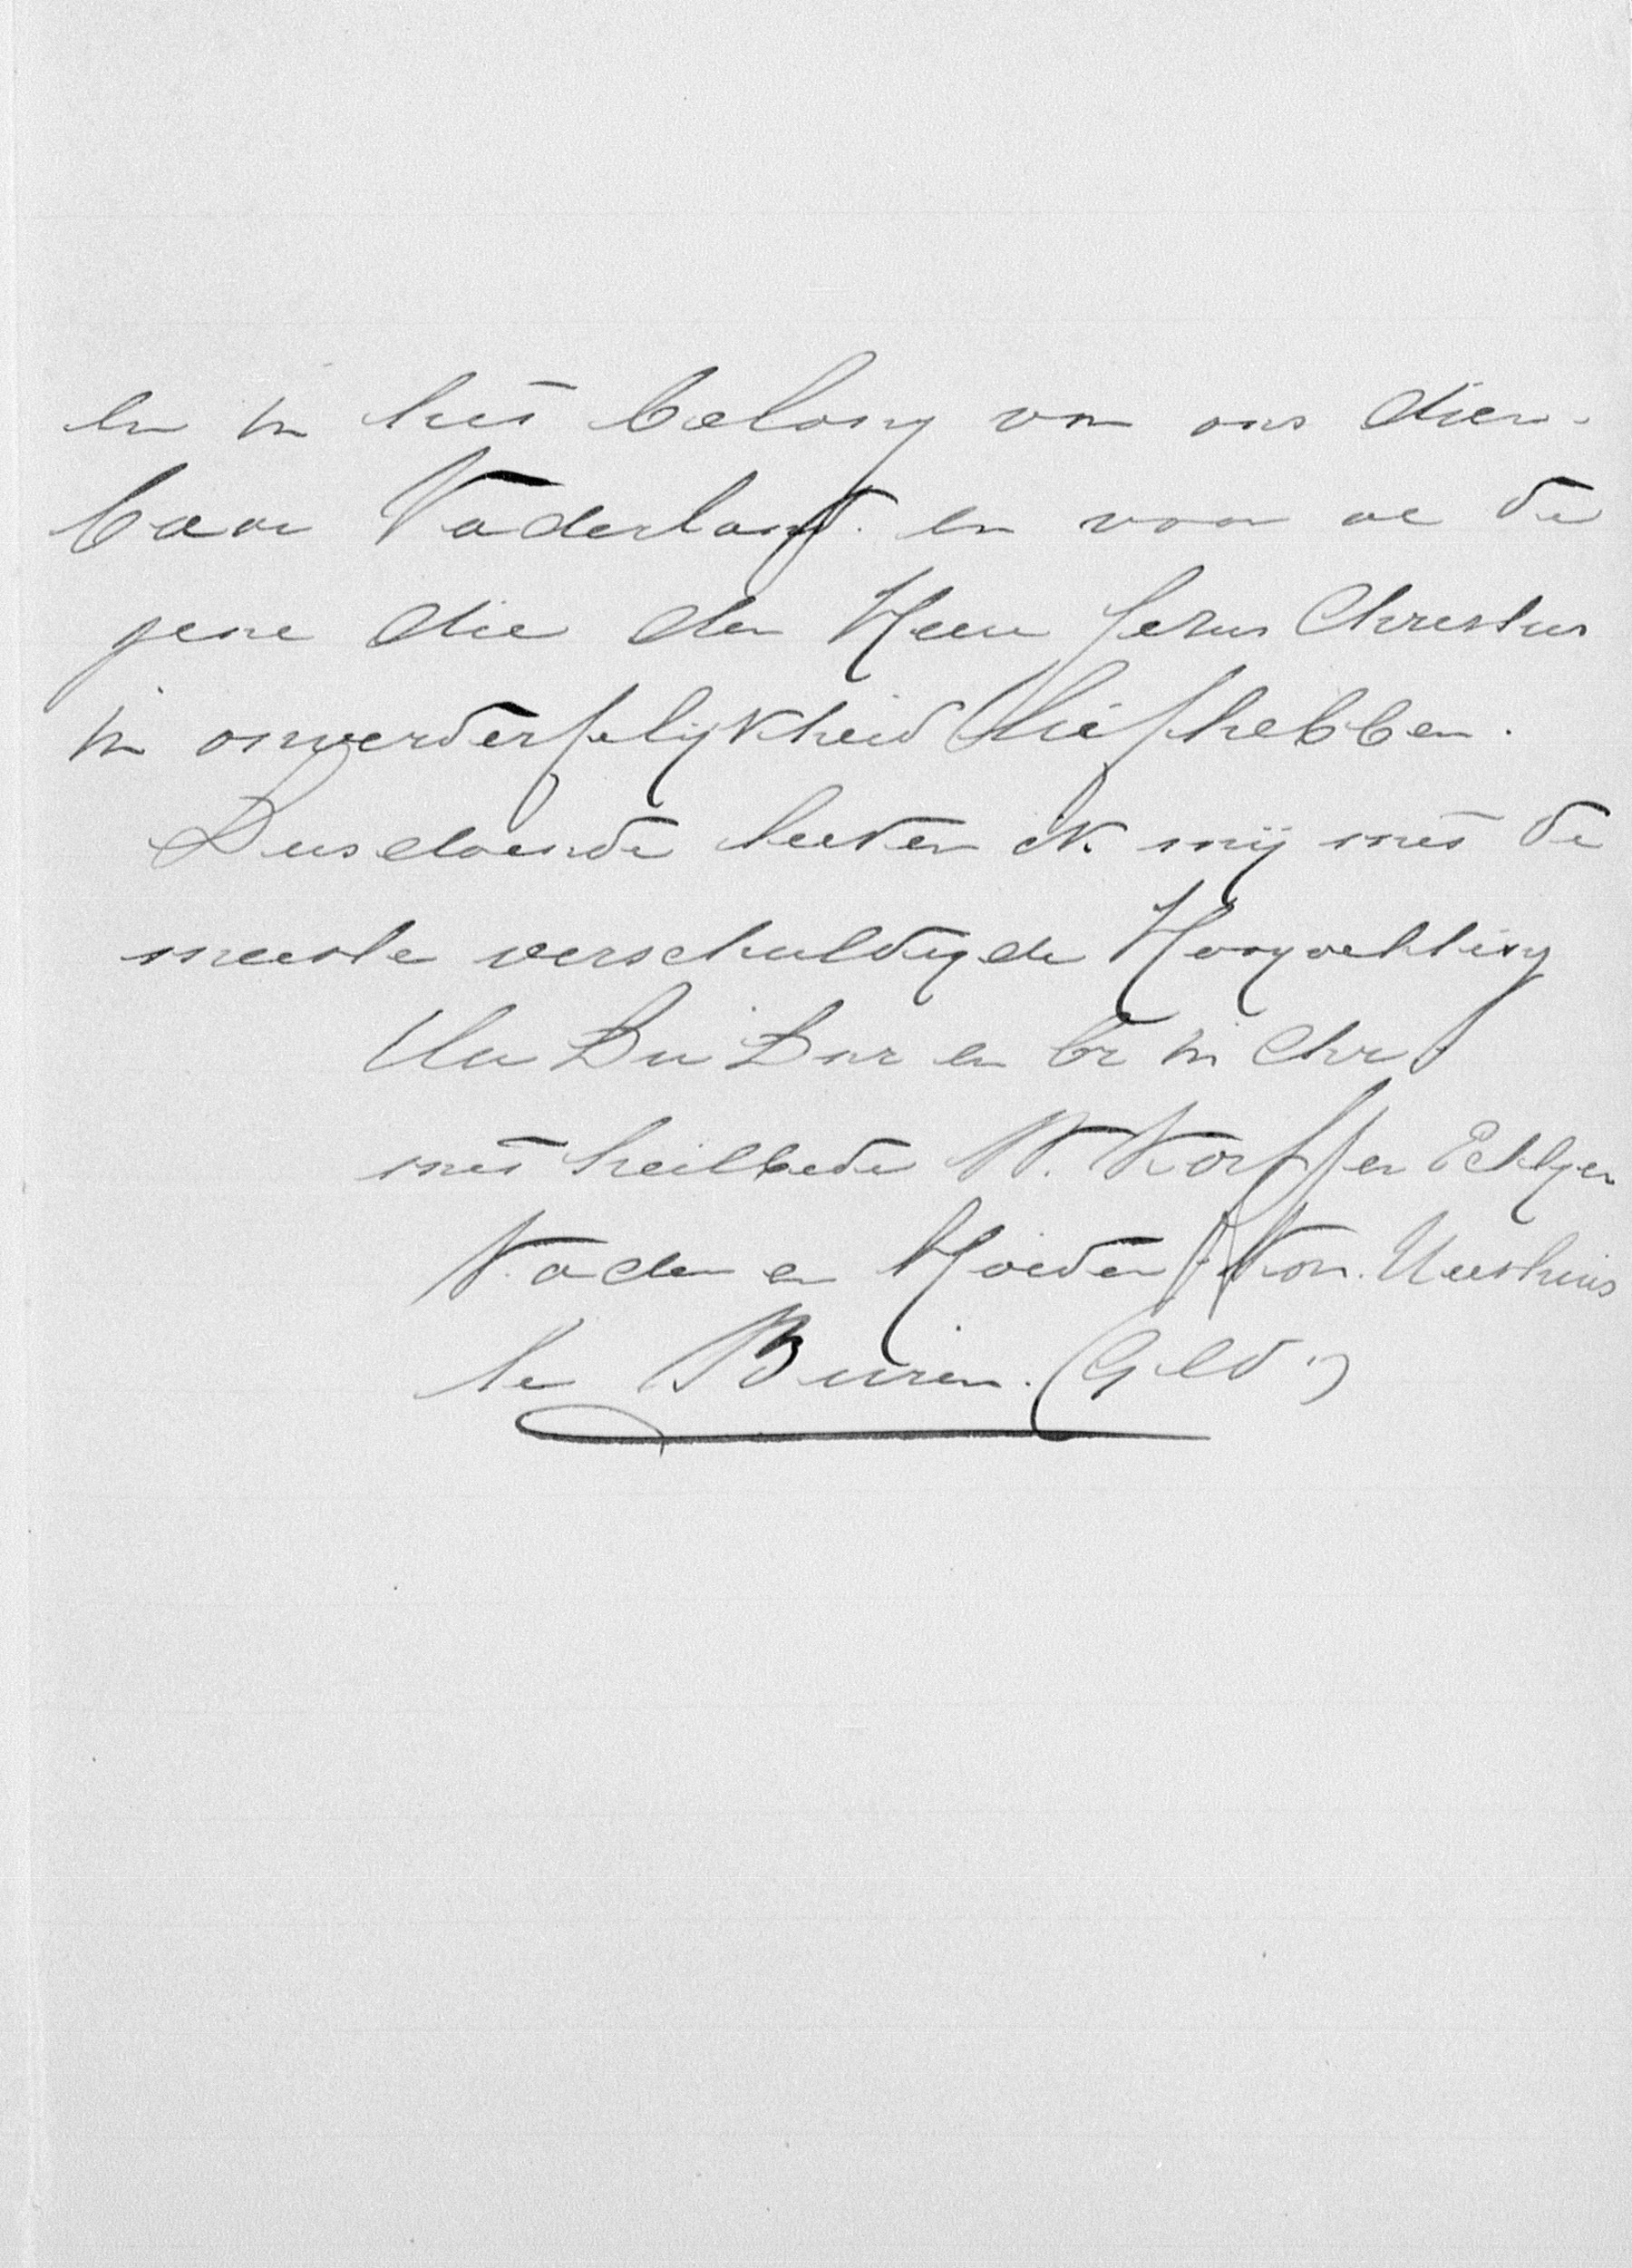 en in het belang van ons dier-
baar Vaderland. en voor al de
gene die den Heer Jezus Christus
in onverderfelijkheid liefhebben.
Dusdoende teeken ik mij met de
meeste verschuldigde Hoogachting
Uw Du Dnr en br in Chr
met heilbede W. Korff en Echtgen
Vader en Moeder v/h Kon. Weeshuis
te Buren. (Geld.)